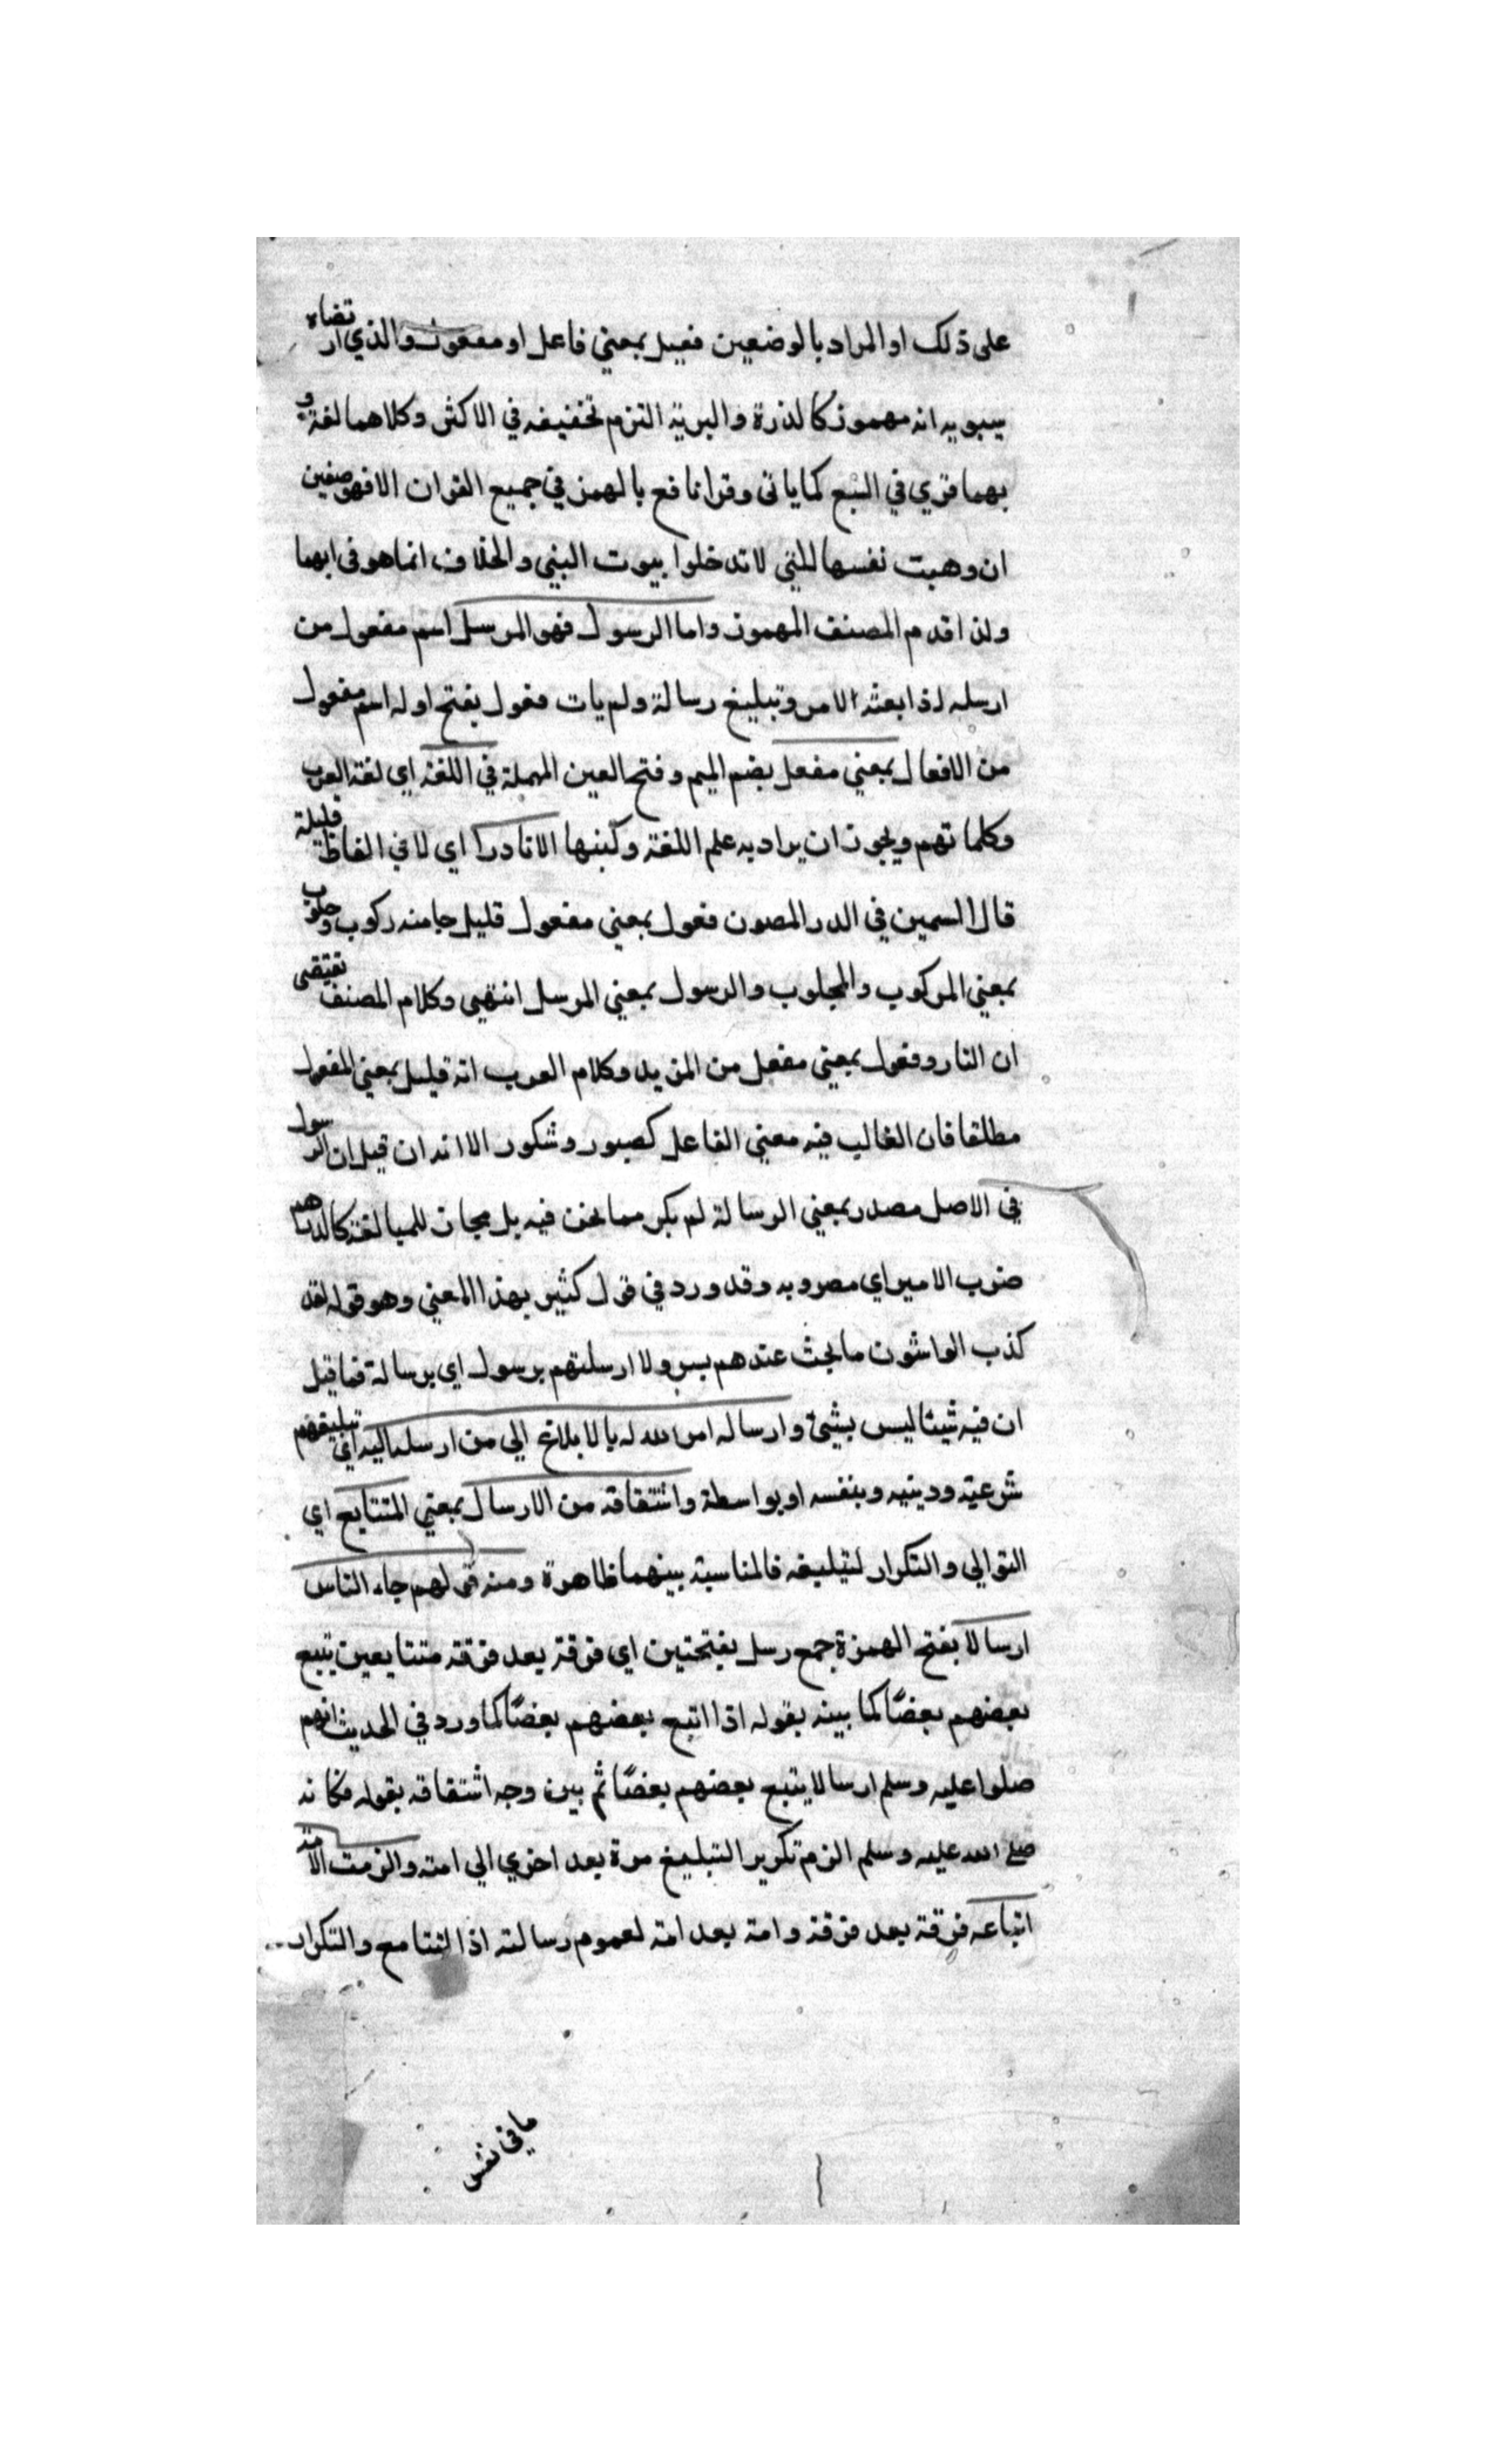 على ذلك او المراد بالوضعين فعيل بمعني فاعل او مفعول والذي ارتضاه
سيبويه انه مهموز كالذرة والبرية التزم تخفيفه في الاكثر وكلاهما لغة و
بهما قري في السبع كما ياتي وقرا نافع بالهمز في جميع القران الا في موضعين
ان وهبت نفسها للنبي لا تدخلوا بيوت النبي والخلاف انما هو في ايهما
ولذا قدم المصنف المهموز واما الرسول فهو المرسل اسم مفعول من
ارسله اذا بعثه الامر وتبليغ رسالة ولم يات فعول بفتح اوله اسم مفعول
من الافعال بمعني مفعل بضم الميم وفتح العين المهملة في اللغة اي لغة العرب
وكلماتهم ويجوز ان يراد به علم اللغة وكتبها الا نادرا اي لا في الفاظ قليلة
قال السمين في الدر المصون فعول بمعني مفعول قليل جا منه ركوب وحلوب
بمعني المركوب والمحلوب والرسول بمعني المرسل انتهي وكلام المصنف تقتضي
ان النادر وفعول بمعني مفعل من المزيد وكلام العرب انه قليل بمعني المفعول
مطلقا فان الغالب فيه معني الفاعل كصبور وشكور الا انه ان قيل ان الرسول
في الاصل مصدر بمعني الرسالة لم يكن مما نحن فيه بل مجاز للمبالغة كالدراهم
ضرب الامير اي مضروبه وقد ورد في قول كثير بهذا المعني وهو قوله لقد
كذب الواشون ما بحت عندهم بسر ولا ارسلتهم برسول اي برسالة فما قيل
ان فيه شيئا ليس بشئ وارساله امر الله له بالابلاغ الي من ارسله اليه اي تبليغهم
شرعية ودينيه وبنفسه او بواسطة واشتقاقه من الارسال بمعني المتتابع اي
التوالي والتكرار لتبليغه فالمناسبة بينهما ظاهرة ومنه قولهم جاء الناس
ارسالا بفتح الهمزة جمع رسل بفتحتين اي فرقة بعد فرقة متتابعين يتبع
بعضهم بعضًا كما بينه بقوله اذا اتبع بعضهم بعضًا كما ورد في الحديث انهم
صلوا عليه وسلم ارسالا يتبع بعضهم بعضًا ثم بين وجه اشتقاقه بقوله فكانه
صلى الله عليه وسلم الزم تكرير التبليغ مرة بعد اخري الي امته والزمت الامة
اتباعه فرقة بعد فرقة وامة بعد امة لعموم رسالته اذا التتابع والتكرار
ما في نفس